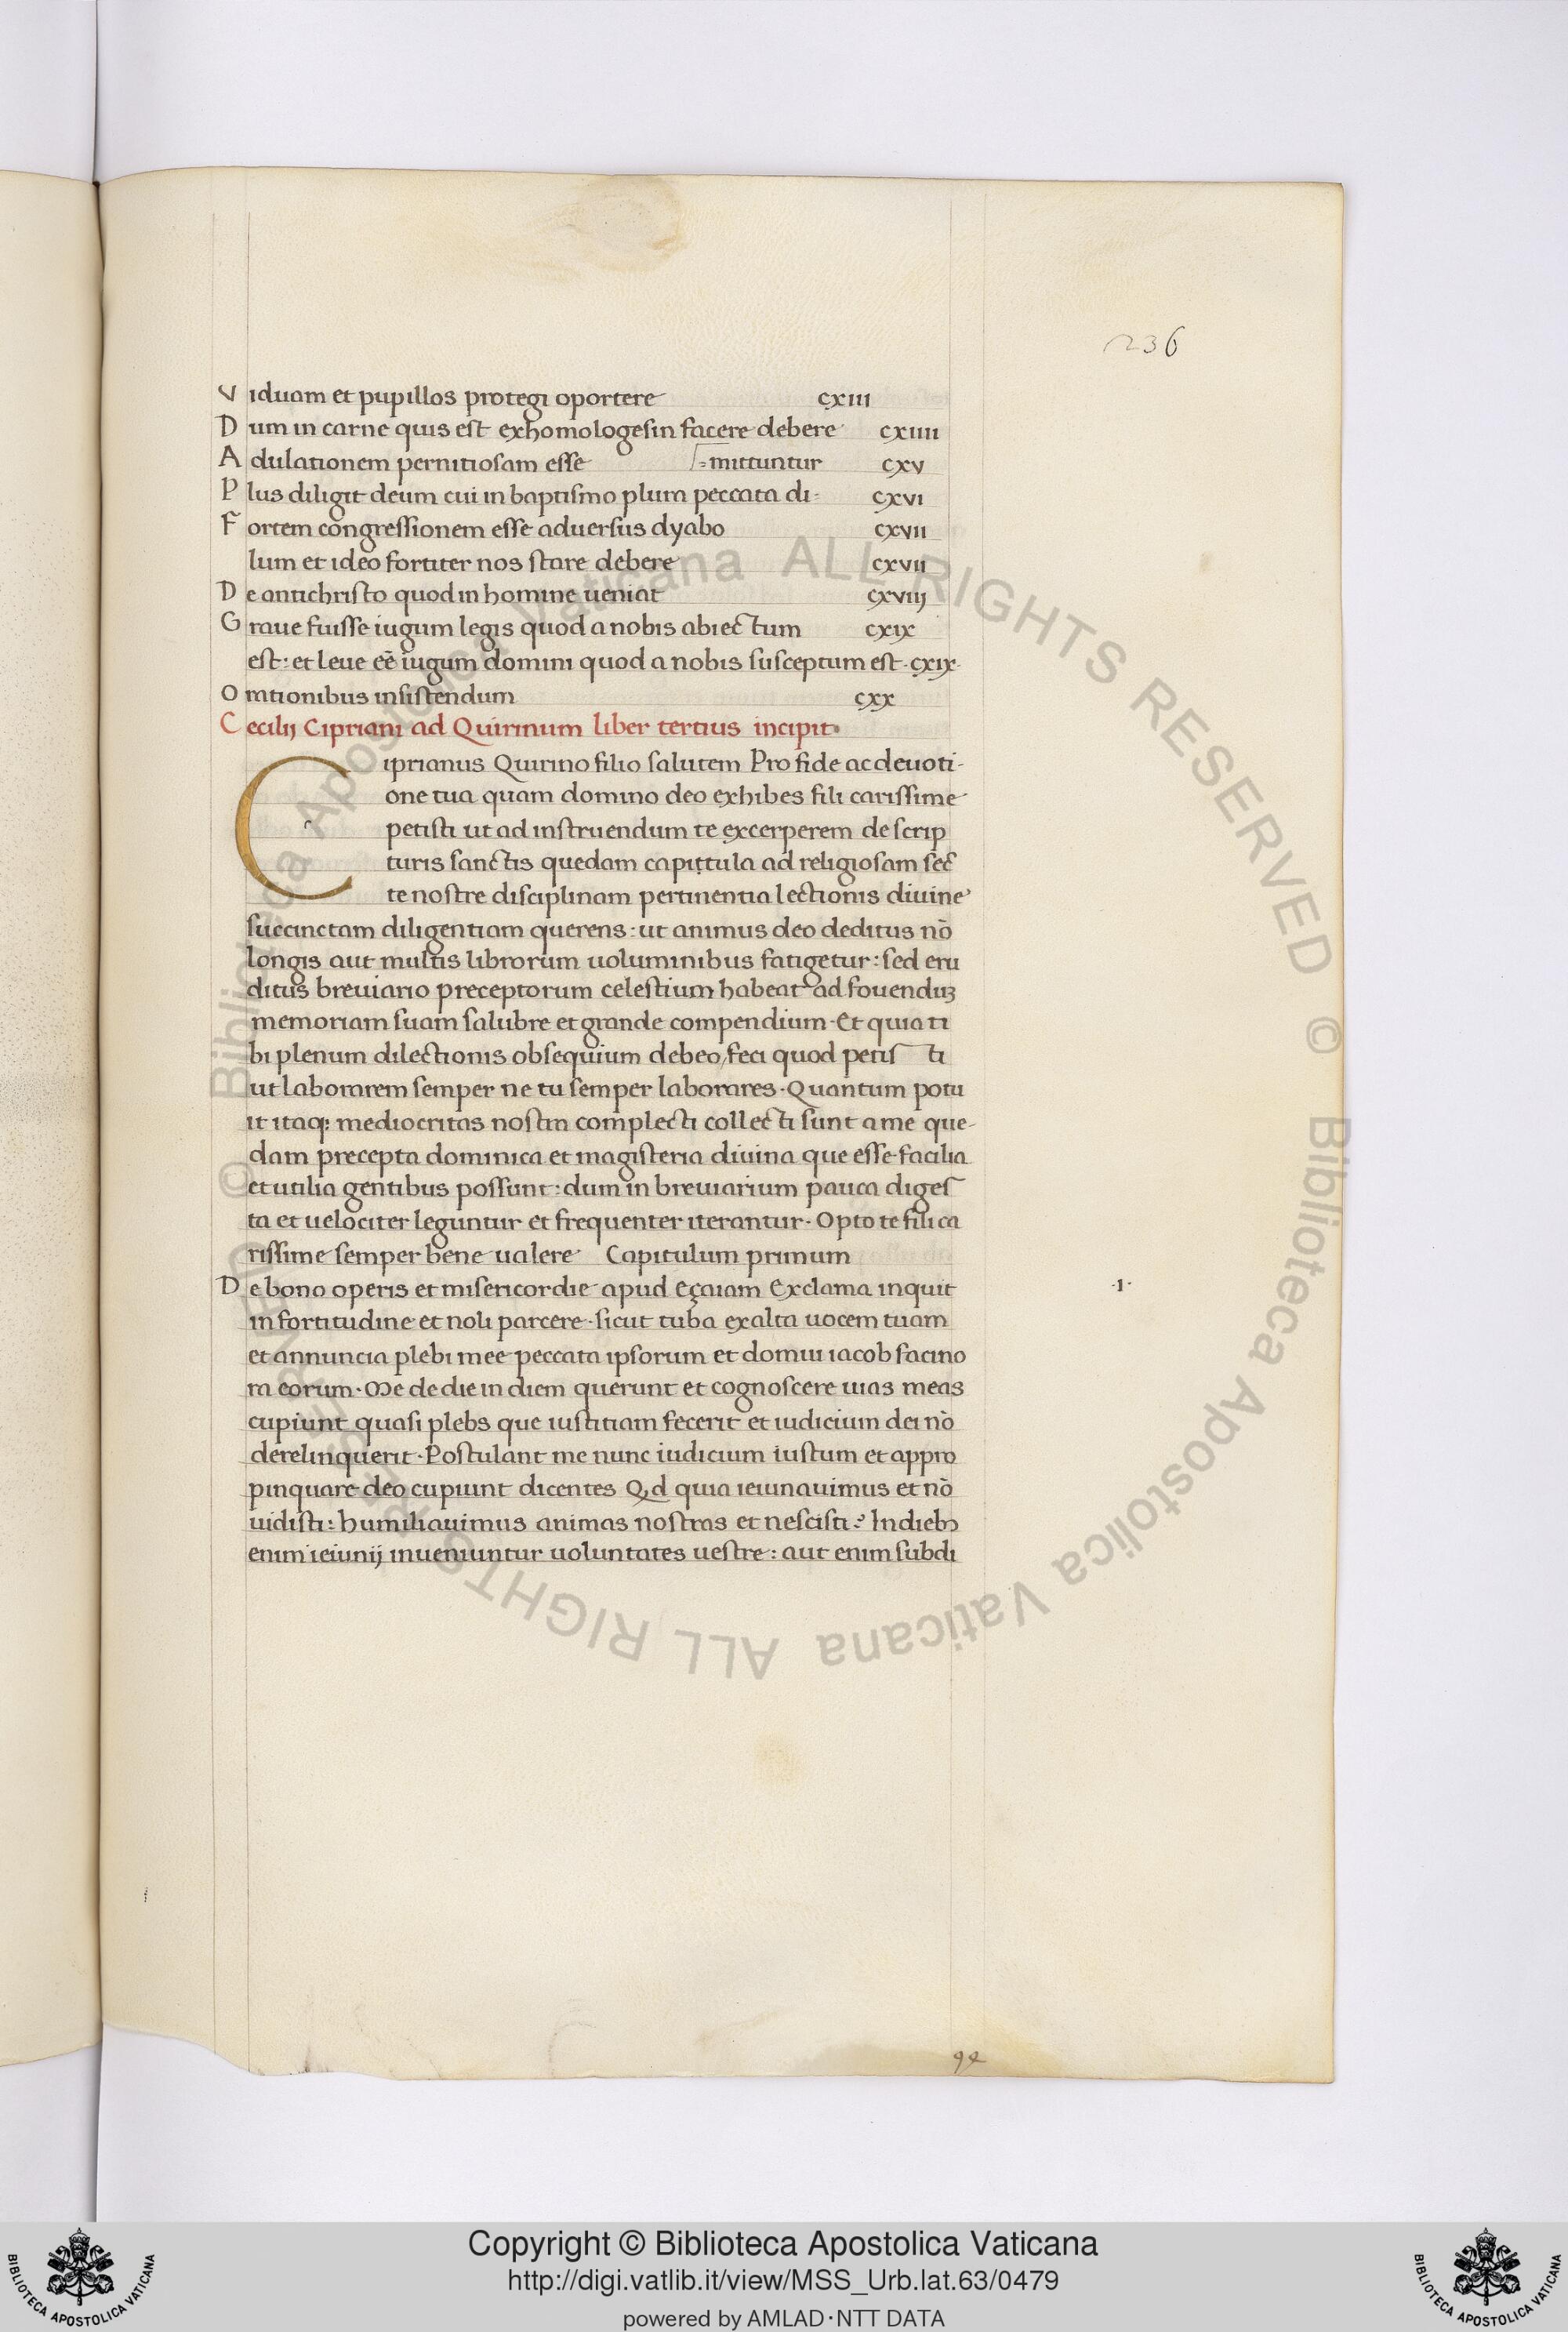 236
Viduam et pupillos protegi oportere cxiii
Dum in carne quis est exhomologesin facere debere cxiiii
Adulationem pernitiosam esse =mittuntur cxv
Plus diligit deum cui in baptismo plura peccata di= cxvi
Fortem congressionem esse aduersus dyabo cxvii
lum et ideo fortiter nos stare debere cxvii
De antichristo quod in homine ueniat cxviij
Graue fuisse iugum legis quod a nobis abiectum cxix
est: et leue eē iugum domini quod a nobis susceptum est · cxix·
Orationibus insistendum cxx
Cecilij Cipriani ad Quirinum liber tertius incipit·
Ciprianus Quirino filio salutem Pro fide ac deuoti-
one tua quam domino deo exhibes fili carissime
petisti ut ad instruendum te excerperem de scrip
turis sanctis quedam capittula ad religiosam sec
te nostre disciplinam pertinentia lectionis diuine
succinctam diligentiam querens: ut animus deo deditus nō
longis aut multis librorum uoluminibus fatigetur: sed eru
ditus breuiario preceptorum celestium habeat ad fouenduȝ
memoriam suam salubre et grande compendium · Et quia ti
bi plenum dilectionis obsequium debeo/feci quod petis ti
ut laborarem semper ne tu semper laborares · Quantum potu
it itaq: mediocritas nostra complecti collecti sunt a me que-
dam precepta dominica et magisteria diuina que esse facilia
et utilia gentibus possunt: dum in breuiarium pauca diges
ta et uelociter leguntur et frequenter iterantur · Opto te fili ca
rissime semper bene ualere Capitulum primum
De bono operis et misericordie apud eçaiam Exclama inquit ·1·
in fortitudine et noli parcere · sicut tuba exalta uocem tuam
et annuncia plebi mee peccata ipsorum et domui iacob facino
ra eorum · Me de die in diem querunt et cognoscere uias meas
cupiunt quasi plebs que iustitiam fecerit et iudicium dei nō
derelinquerit · Postulant me nunc iudicium iustum et appro
pinquare deo cupiunt dicentes Qd quia ieiunauimus et nō
uidisti: humiliauimus animas nostras et nescisti? In dieb;
enim ieiunij inueniuntur uoluntates uestre: aut enim subdi
© Biblioteca Apostolica Vaticana ALL RIGHTS RESERVED
© Biblioteca Apostolica Vaticana ALL RIGHTS RESERVED
Copyright © Biblioteca Apostolica Vaticana
http://digi.vatlib.it/view/MSS_Urb.lat.63/0479
powered by AMLAD·NTT DATA
BIBLIOTECA APOSTOLICA VATICANA
BIBLIOTECA APOSTOLICA VATICANA